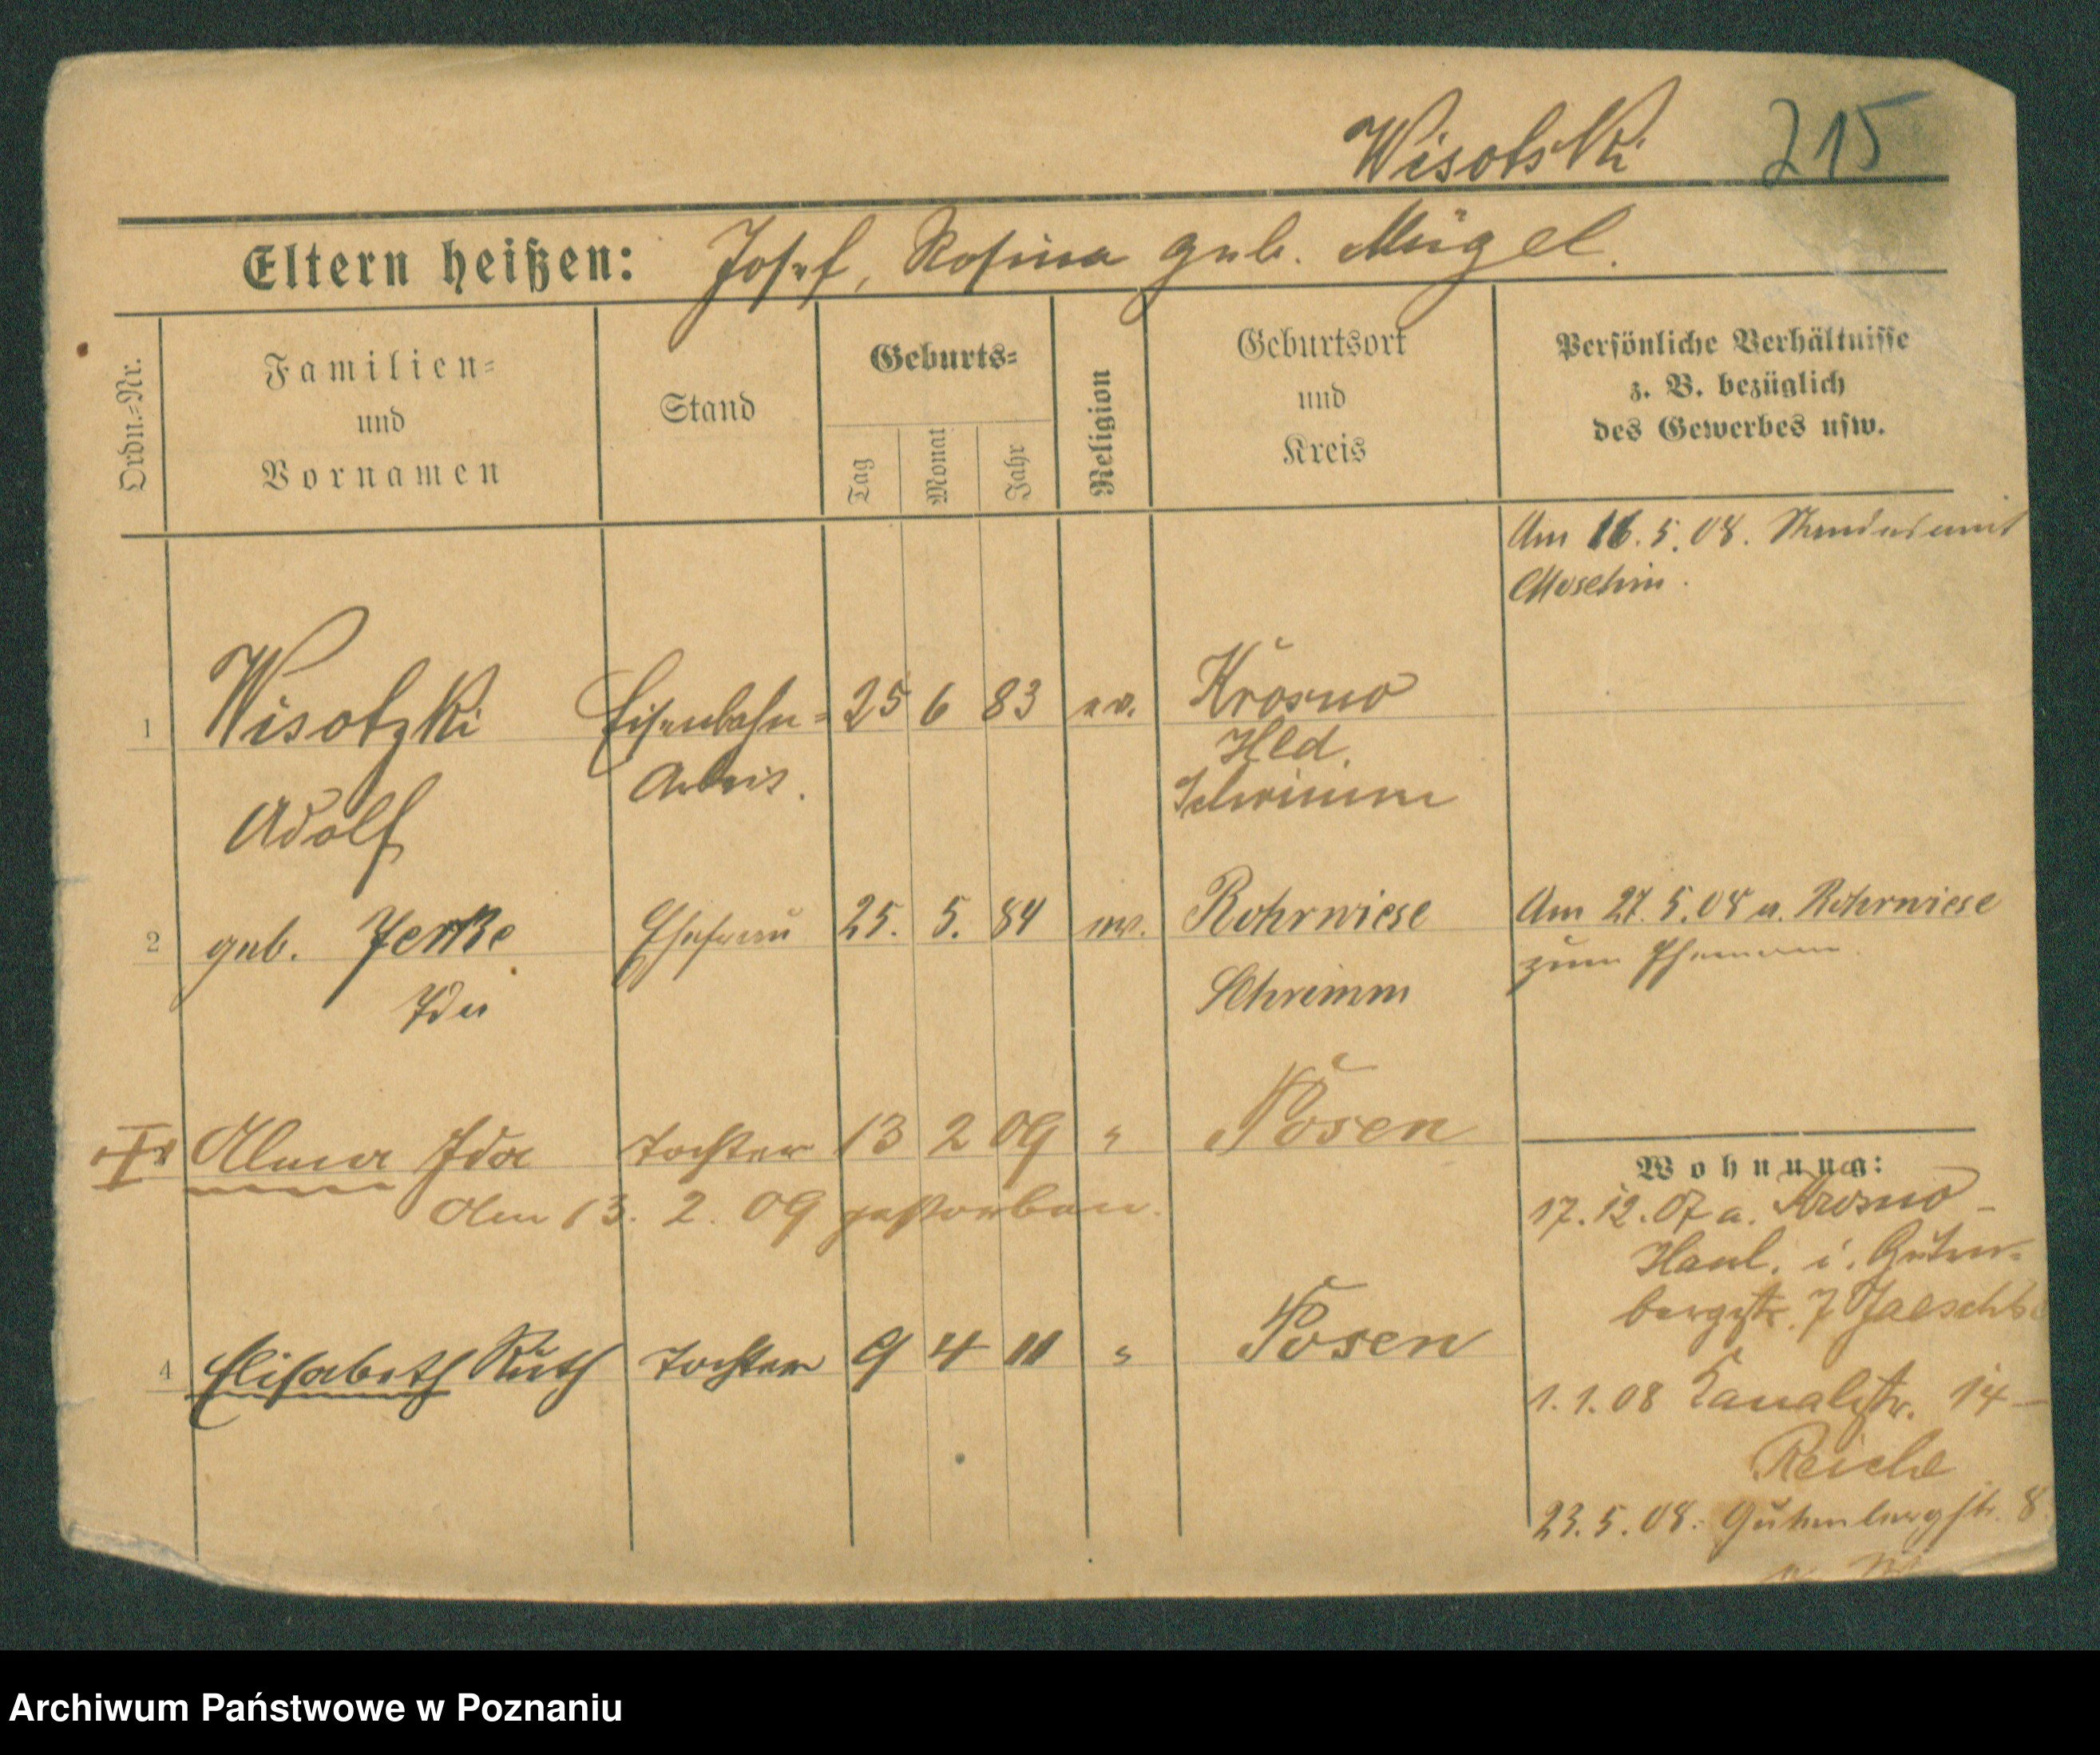 Wisotski 215
Eltern heißen: Josef, Rosina geb. Mügel.
Ordn.=Nr.
Familien=
und
Vornamen
Stand
Geburts=
Tag
Monat
Jahr
Religion
Geburtsort
und
Kreis
Persönliche Verhältnisse
z. B. bezüglich
des Gewerbes usw.
Am 16. 5. 08. Standesamt
Moschin.
1 Wisotzki Eisenbahn= 25 6 83 ev. Krosno
Hld.
Adolf Arbeit. Schrimm
2 geb. Jerke Ehefrau 25. 5. 84 ev. Rohrwiese
Ida Schrimm
Am 27. 5. 08 a. Rohrwiese
zum Ehemann.
Alma Ida Tochter 13 2 09 " Posen
Am 13. 2. 09 gestorben.
4 Elisabeth Ruth Tochter 9 4 11 " Posen
Wohnung:
17. 12. 07 a. Krosno-
Haul. i. Guten-
bergstr. 7
1. 1. 08 Kanalstr. 14 -
Reiche
23. 5. 08. Gutenbergstr. 8
Archiwum Państwowe w Poznaniu